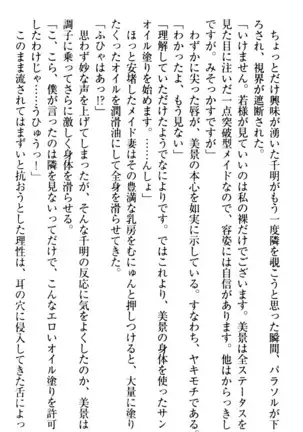 ちょっとだけ興味が湧いた千明がもう一度隣を覗こうと思った瞬間、パラソルが下
ろされ、視界が遮断された。
「いけません。若様が見ていいのは私の裸だけでございます。美景は全ステータスを
見た目に注いだ一点突破型メイドなので、容姿には自信があります。他はからっきし
ですが。みそっかすですが」
「わかったよ、もう見ない」
わずかに尖った唇が、美景の本心を如実に示している。すなわち、ヤキモチである。
「理解していただけたようでなによりです。ではこれより、美景の身体を使ったサン
オイル塗りを始めます。……んしょ」
ほっと安堵したメイド妻はその豊満な乳房をむにゅんと押しつけると、大量に塗り
たくったオイルを潤滑油にして全身を滑らせてきた。
「ふひゃはあっ!?」
思わず妙な声を上げてしまったが、そんな千明の反応に気をよくしたのか、美景は
調子に乗ってさらに激しく身体を滑らせる。
「こ、こら、僕が言ったのは隣を見ないってだけで、こんなエロいオイル塗りを許可
したわけじゃ……うひゅうっ!」
このまま流されてはまずいと抗おうとした理性は、耳の穴に侵入してきた舌によっ